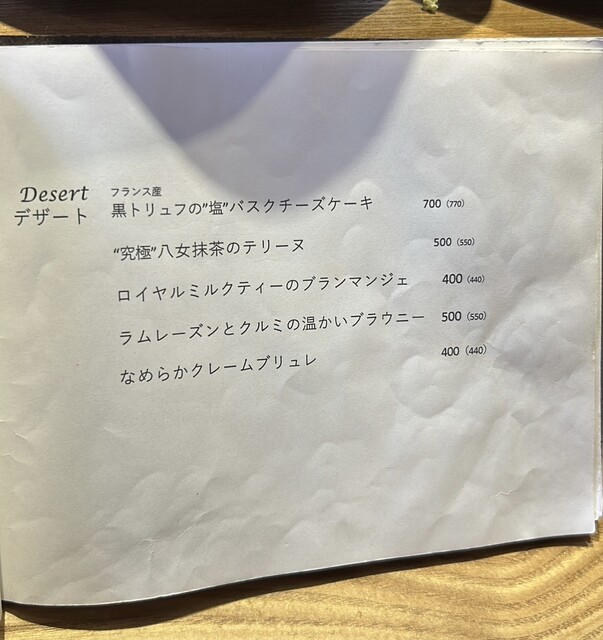 Desert
デザート
フランス産
黒トリュフの"塩"バスクチーズケーキ 700 (770)
"究極"八女抹茶のテリーヌ 500 (550)
ロイヤルミルクティーのブランマンジェ 400 (440)
ラムレーズンとクルミの温かいブラウニー 500 (550)
なめらかクレームブリュレ 400 (440)